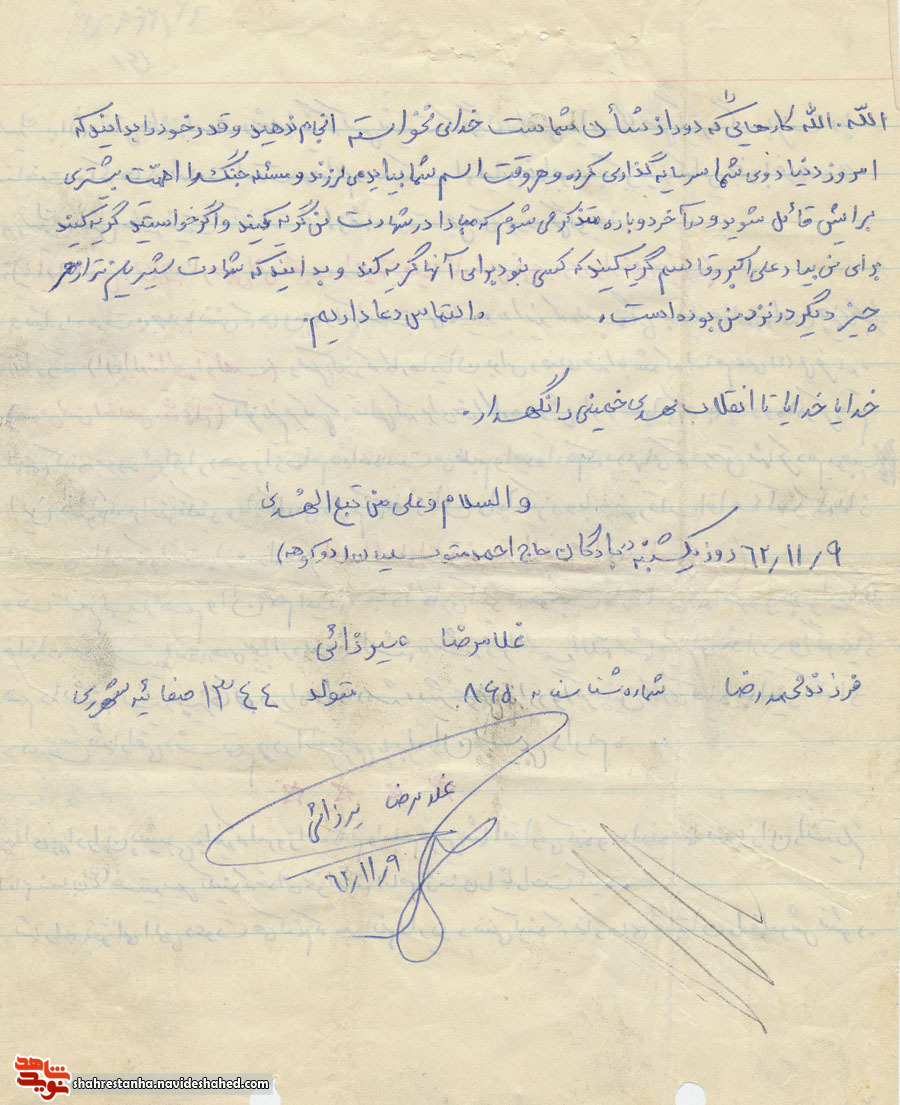 الله. الله کارهایی را که دور از شأن شماست خدای نخواسته انجام ندهید و قدر خود را بدانید که
امروز دنیا روی شما سرمایه گذاری کرده و هر وقت اسم شما بیاید می لرزند و مسئله جنگ را اهمیّت بیشتری
برایش قائل شوید و در آخر دوباره متذکر می شوم که مبادا در شهادت من گریه کنید و اگر خواستید گریه کنید
برای من بیاد علی اکبر و قاسم گریه کنید که کسی نبود برای آنها گریه کند و بدانید که شهادت شیرین تر از هر
چیز دیگر در نزد من بوده است. والتماس دعا داریم.
خدایا خدایا تا انقلاب مهدی خمینی را نگهدار.
والسلام و علی من تبع الهدی
۶۲/۱۱/۹ روز یکشنبه پادگان حاج احمد متوسلیان (دوکوهه)
غلامرضا شیرزائی
فرزند محمدرضا شماره شناسنامه متولد ۱۳۴۴ صفائیه شهرری
غلامرضا
۶۲/۱۱/۹
شاهد
نوید
shahrestanha.navideshahed.com